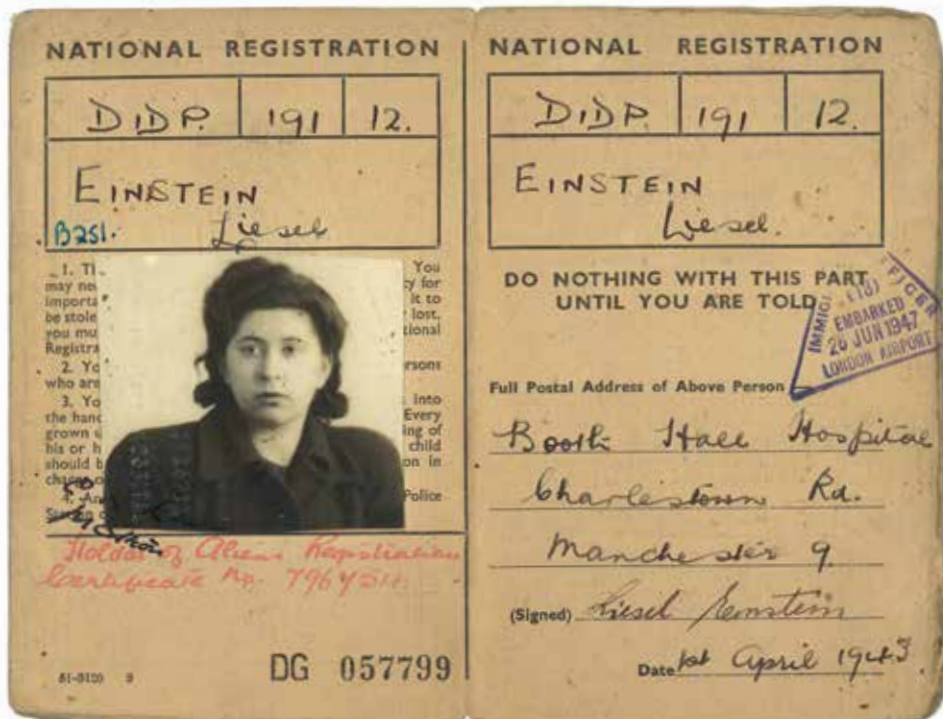 NATIONAL REGISTRATION
DIDP. 191 12.
EINSTEIN
Liesel
B251.
1. You
may for
importa it to
be stole lost,
you mu tional
Registra
2. Yo rsons
who are
3. Yo into
the hand Every
grown ing of
his or h child
should b on in
4. An Police
Holder of Aliens Registration
Certificate No.
51-3120 9
DG 057799
NATIONAL REGISTRATION
DIDP. 191 12.
EINSTEIN
Liesel.
DO NOTHING WITH THIS PART
UNTIL YOU ARE TOLD
IMMIG FFICER
EMBARKED
26 JUN 1947
LONDON AIRPORT
Full Postal Address of Above Person
Booth Hall Hospital
Charlestown Rd.
Manchester 9.
(Signed) Liesel Einstein
Date 1st April 1943